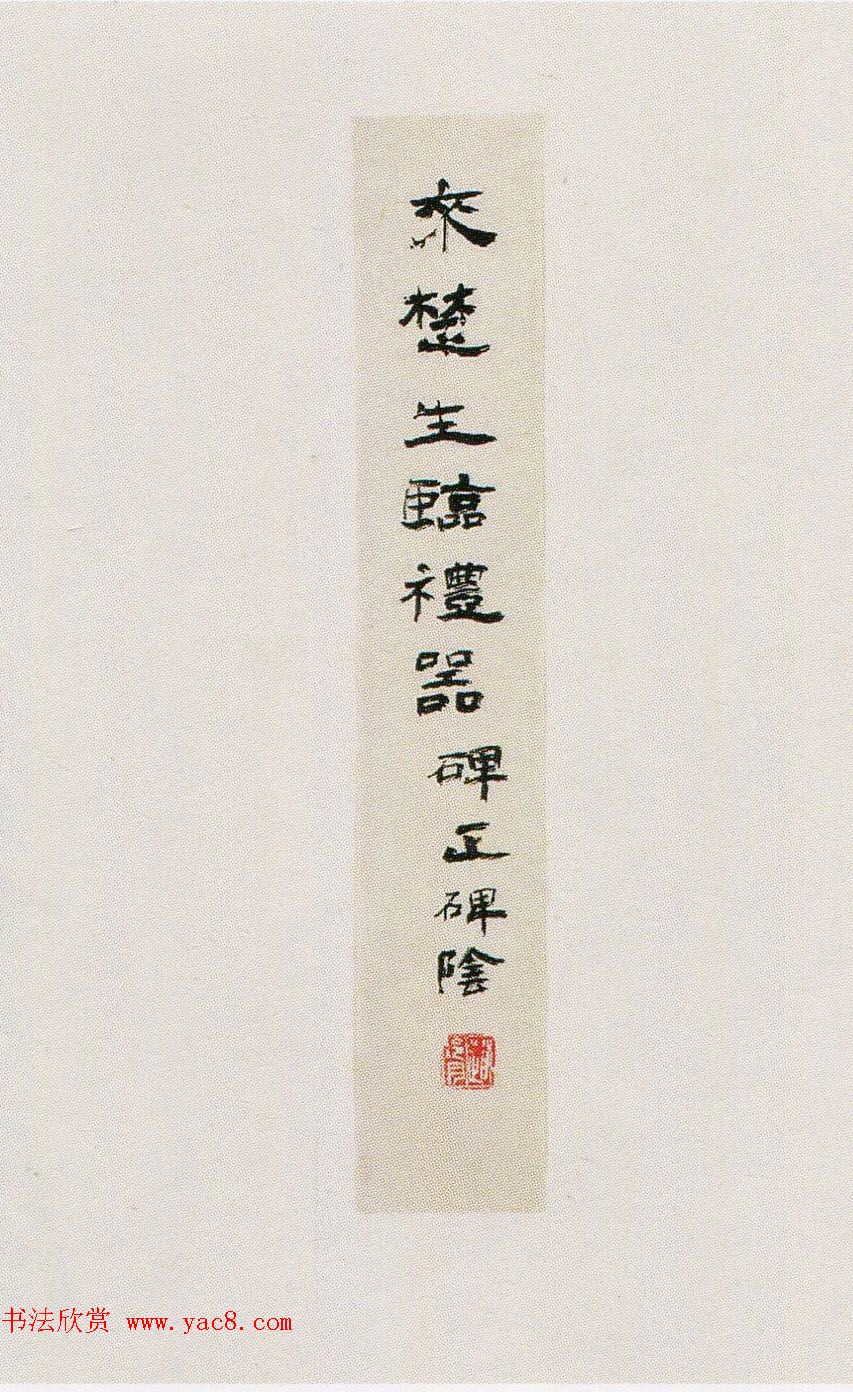 來楚生臨禮器碑正碑陰
书法欣赏 www.yac8.com